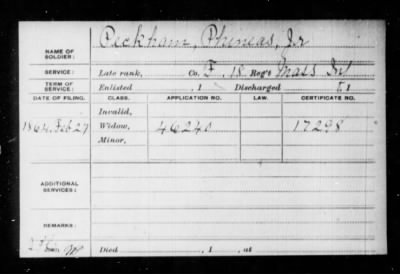 NAME OF SOLDIER: Peckham, Phineas, Jr
SERVICE: Late rank, Co. F, 18 Reg't Mass Inf
TERM OF SERVICE: Enlisted , 1 Discharged , 1
DATE OF FILING. CLASS. APPLICATION NO. LAW. CERTIFICATE NO.
Invalid,
1864, Feb 27 Widow, 46240 17298
Minor,
ADDITIONAL SERVICES:
REMARKS:
Died , 1 , at